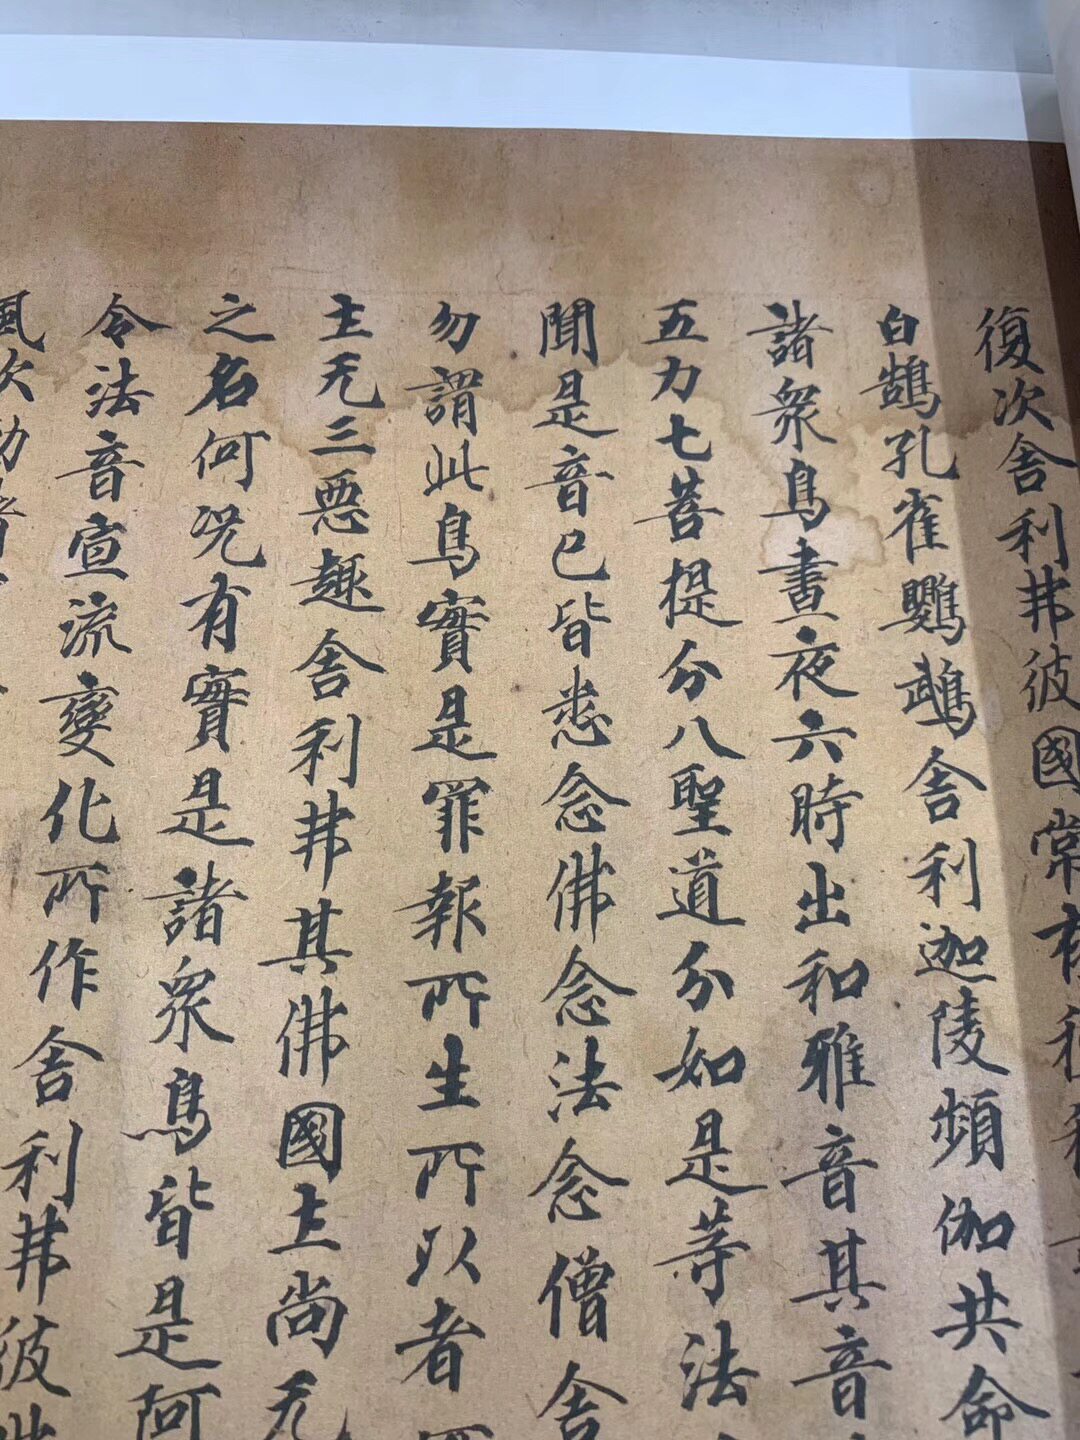 復次舍利弗彼國常有種種
白鵠孔雀鸚鵡舍利迦陵頻伽共命
諸衆鳥晝夜六時出和雅音其音
五力七菩提分八聖道分如是等法
聞是音已皆悉念佛念法念僧舍
勿謂此鳥實是罪報所生所以者
土无三惡趣舍利弗其佛國土尚无
之名何况有實是諸衆鳥皆是阿
令法音宣流變化所作舍利弗彼
風吹動諸